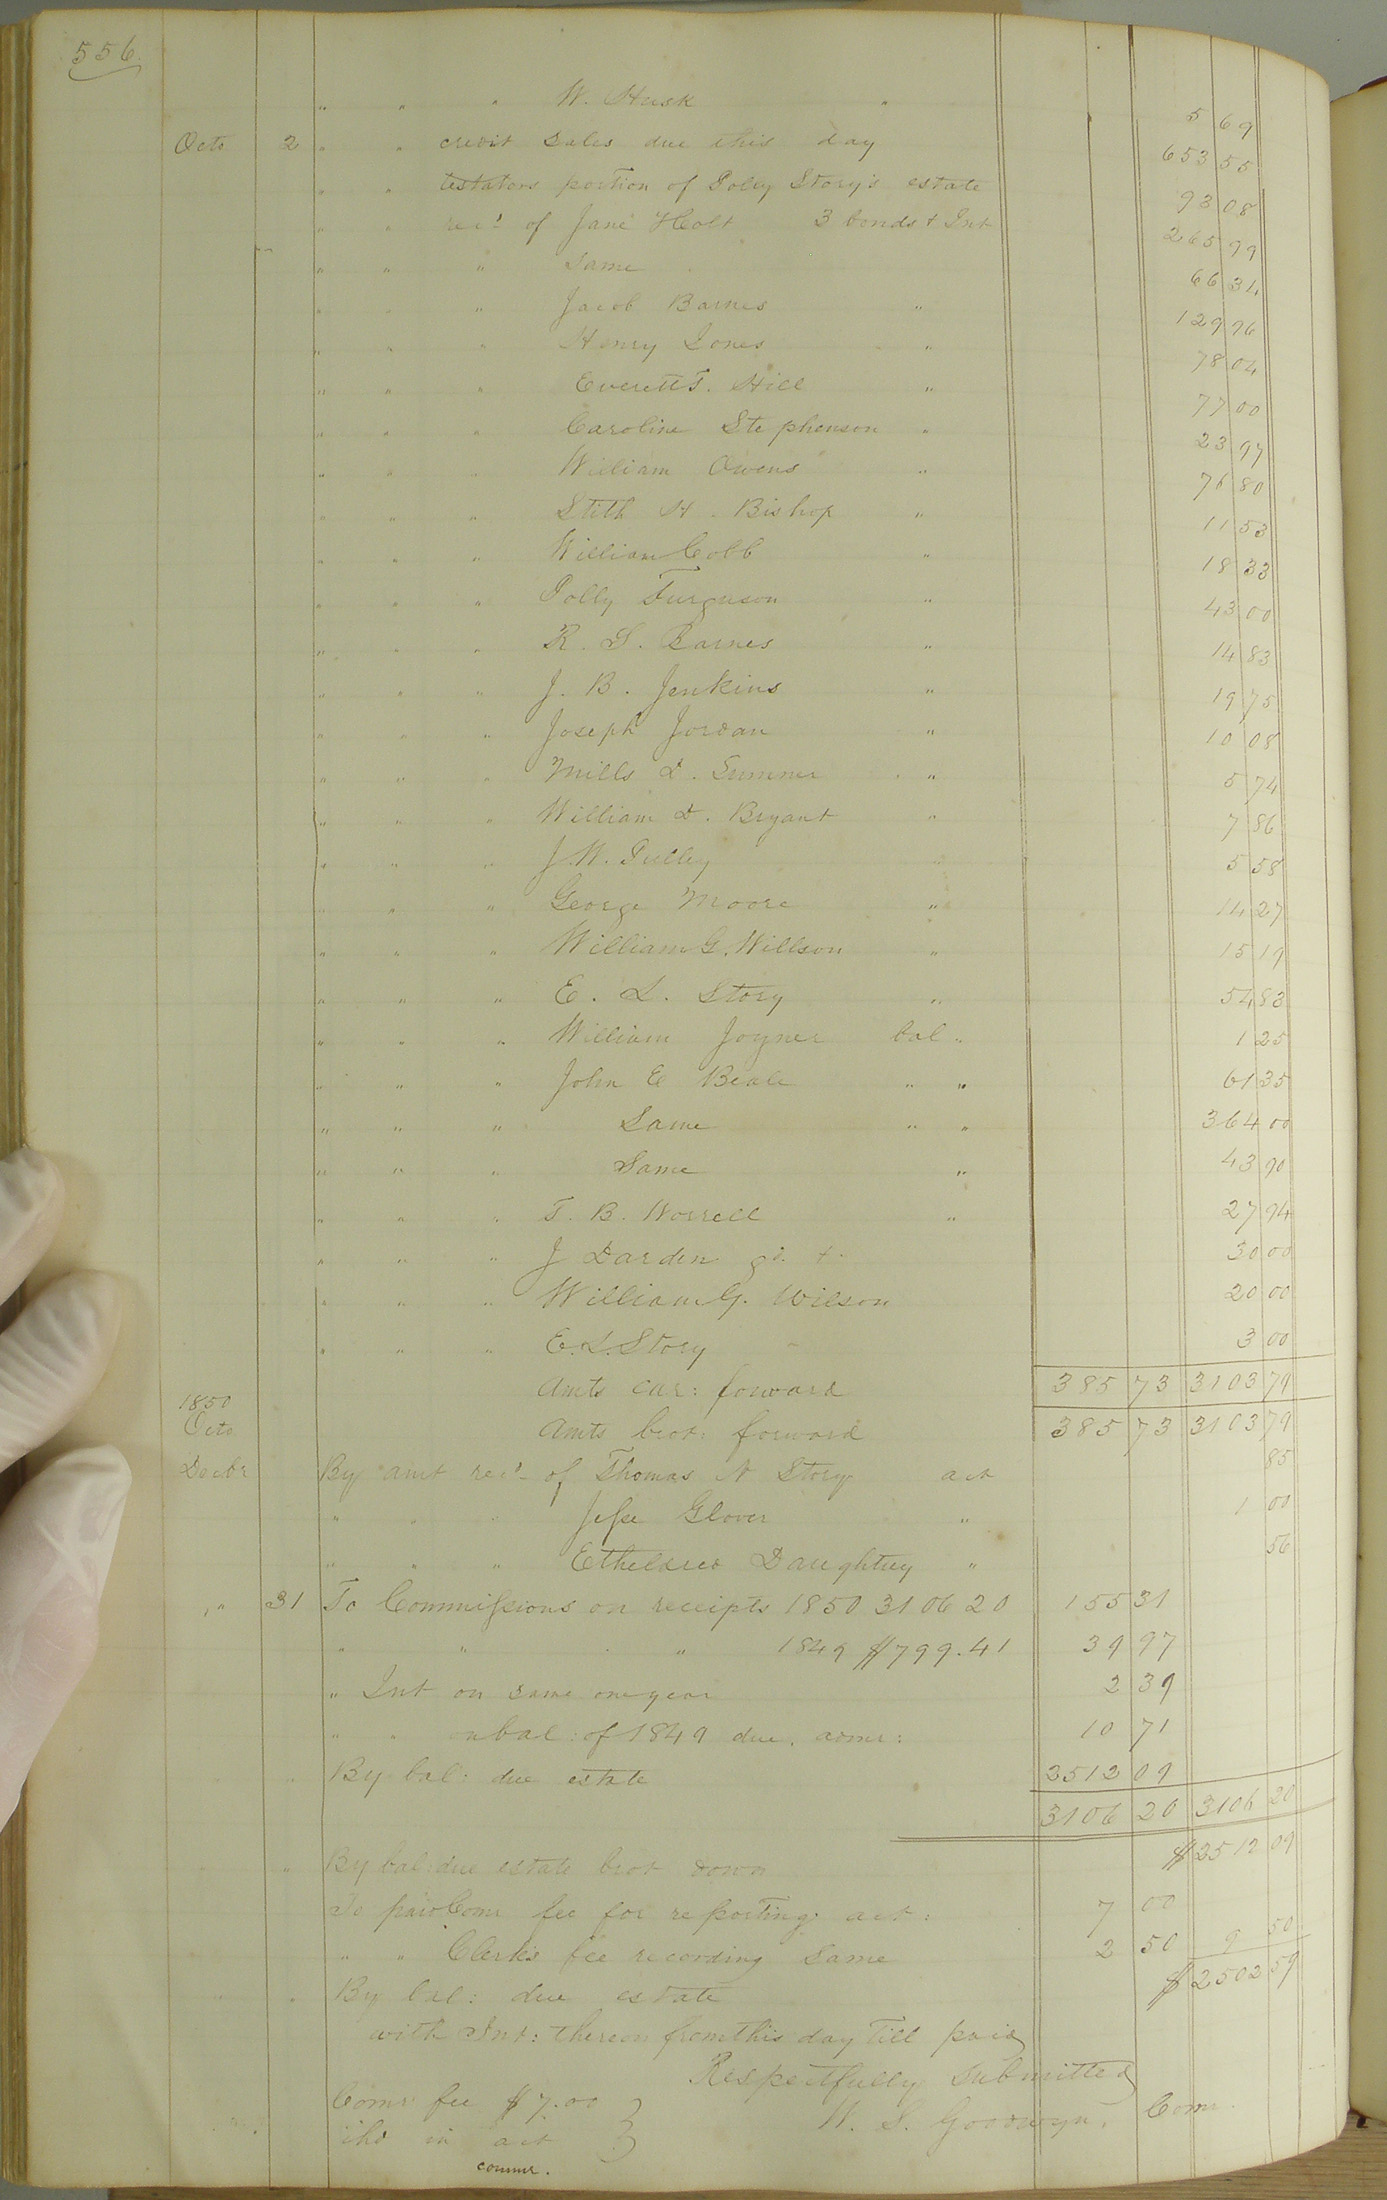 556
" " " W. Husk " 5 69
Octo 2 " " credit sales due this day 653 55
" " testators portion of Polly Story's estate 93 08
" " recd of Jane Holt 3 bonds & Int 265 99
" " " Same 66 31
" " " Jacob Barnes " 129 96
" " " Henry Jones " 78 04
" " " Everett T. Hill " 77 00
" " " Caroline Stephenson " 23 97
" " " William Owens " 76 80
" " " Stith H. Bishop " 11 53
" " " William Cobb " 18 33
" " " Polly Furguson " 43 00
" " " R. S. Barnes " 14 83
" " " J. B. Jenkins " 19 75
" " " Joseph Jordan " 10 08
" " " Mills D. Summer " 5 74
" " " William D. Bryant " 7 86
" " " J W. Pulley " 5 58
" " " George Moore " 14 27
" " " William G. Willson " 15 19
" " " E. L. Story " 54 83
" " " William Joyner bal " 1 25
" " " John E Beale " " 61 35
" " " Same " " 364 00
" " " Same " 43 90
" " " T. B. Worrell " 27 94
" " " J Darden 30 00
" " " William G. Wilson 20 00
" " " E. L. Story 3 00
Amts car: forward 385 73 3103 79
1850
Octo Amts brot: forward 385 73 3103 79
Decbr By amt recd of Thomas N Story act 85
" " " Jesse Glover " 1 00
" " " Etheldred Daughtrey " 56
" 31 To Commissions on receipts 1850 3106 20 155 31
" " " 1849 $799.41 39 97
" Int on same one year 2 39
" " on bal: of 1849 due, admr: 10 71
" By bal: due estate 2512 09
3106 20 3106 20
" By bal: due estate brot down $2512 09
To paid Comr fee for reporting act: 7 00
" " Clerks fee recording same 2 50 9 50
" By bal: due estate $2502 59
with Int: thereon from this day till paid
Respectfully submitted
Coms fee $7.00 } W. S. Goodwyn, Comr.
chd in act }
commr.